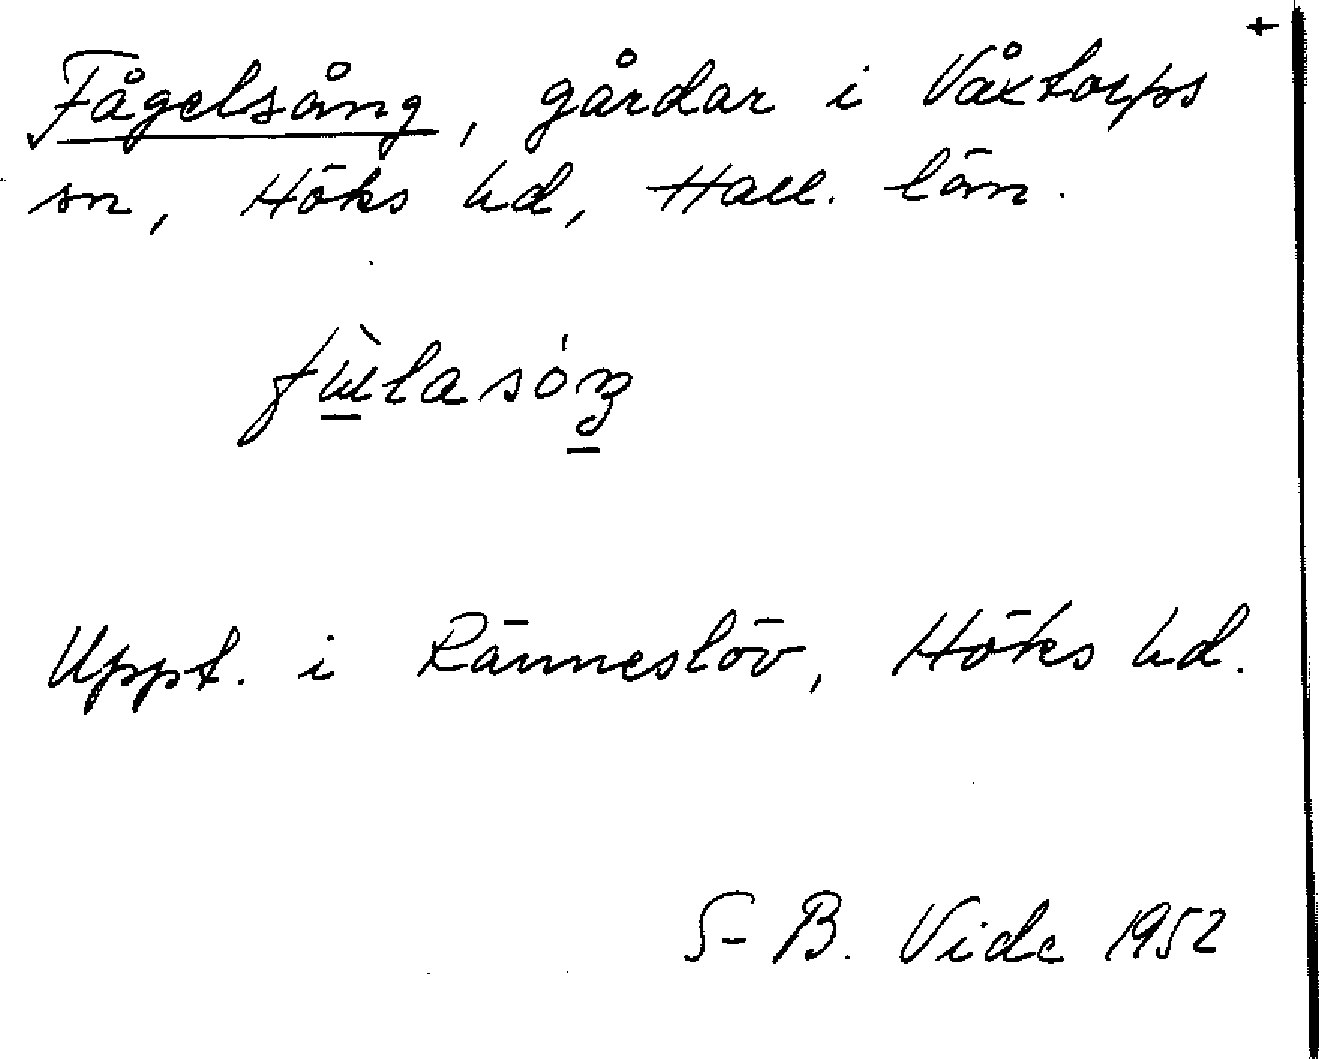 +
Fågelsång, gårdar i Våxtorps
sn, Höks hd, Hall. län.
Uppt. i Ränneslöv, Höks hd.
S-B. Vide 1952